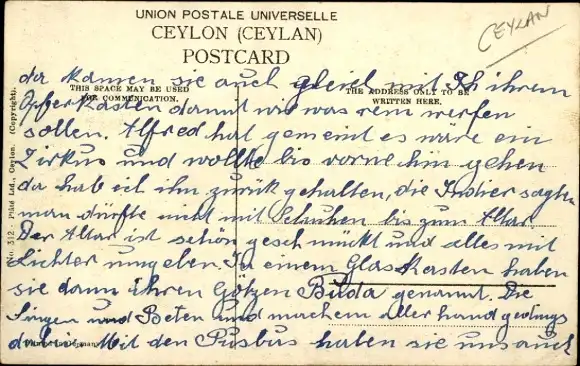 UNION POSTALE UNIVERSELLE
CEYLON (CEYLAN)
POSTCARD
CEYLAN
THIS SPACE MAY BE USED
FOR COMMUNICATION.
THE ADDRESS ONLY TO BE
WRITTEN HERE.
No. 312 - Plâté Ltd., Ceylon. (Copyright).
da kamen sie auch gleich mit ihrem
Opferkasten damit wir was rein werfen
sollen. Alfred hat gemeint es wäre ein
Zirkus und wollte bis vorne hin gehen
da hab ich ihn zurück gehalten, die Inder sagten
man dürfte nicht mit Schuhen bis zum Altar
Der Altar ist schön geschmückt und alles mit
Lichter umgeben. In einem Glaskasten haben
sie dann ihren Götzen Buda genannt. Die
Singen und Beten und machen aller hand
dabei. Mit den haben sie uns auch